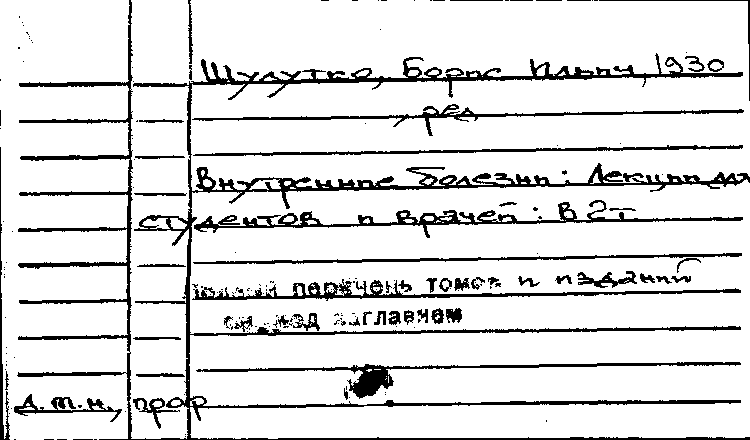 Шулутко, Борис Ильич, 1930
, ред
Внутренние болезни: Лекции для
студентов и врачей: В 2т
Полный перечень томов и изданий
см. под заглавием
д.т.н., проф